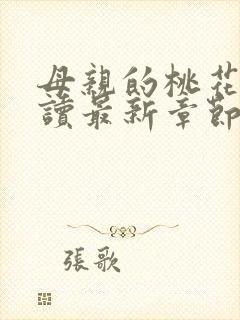 母親的桃花
讀最新章節
張歌